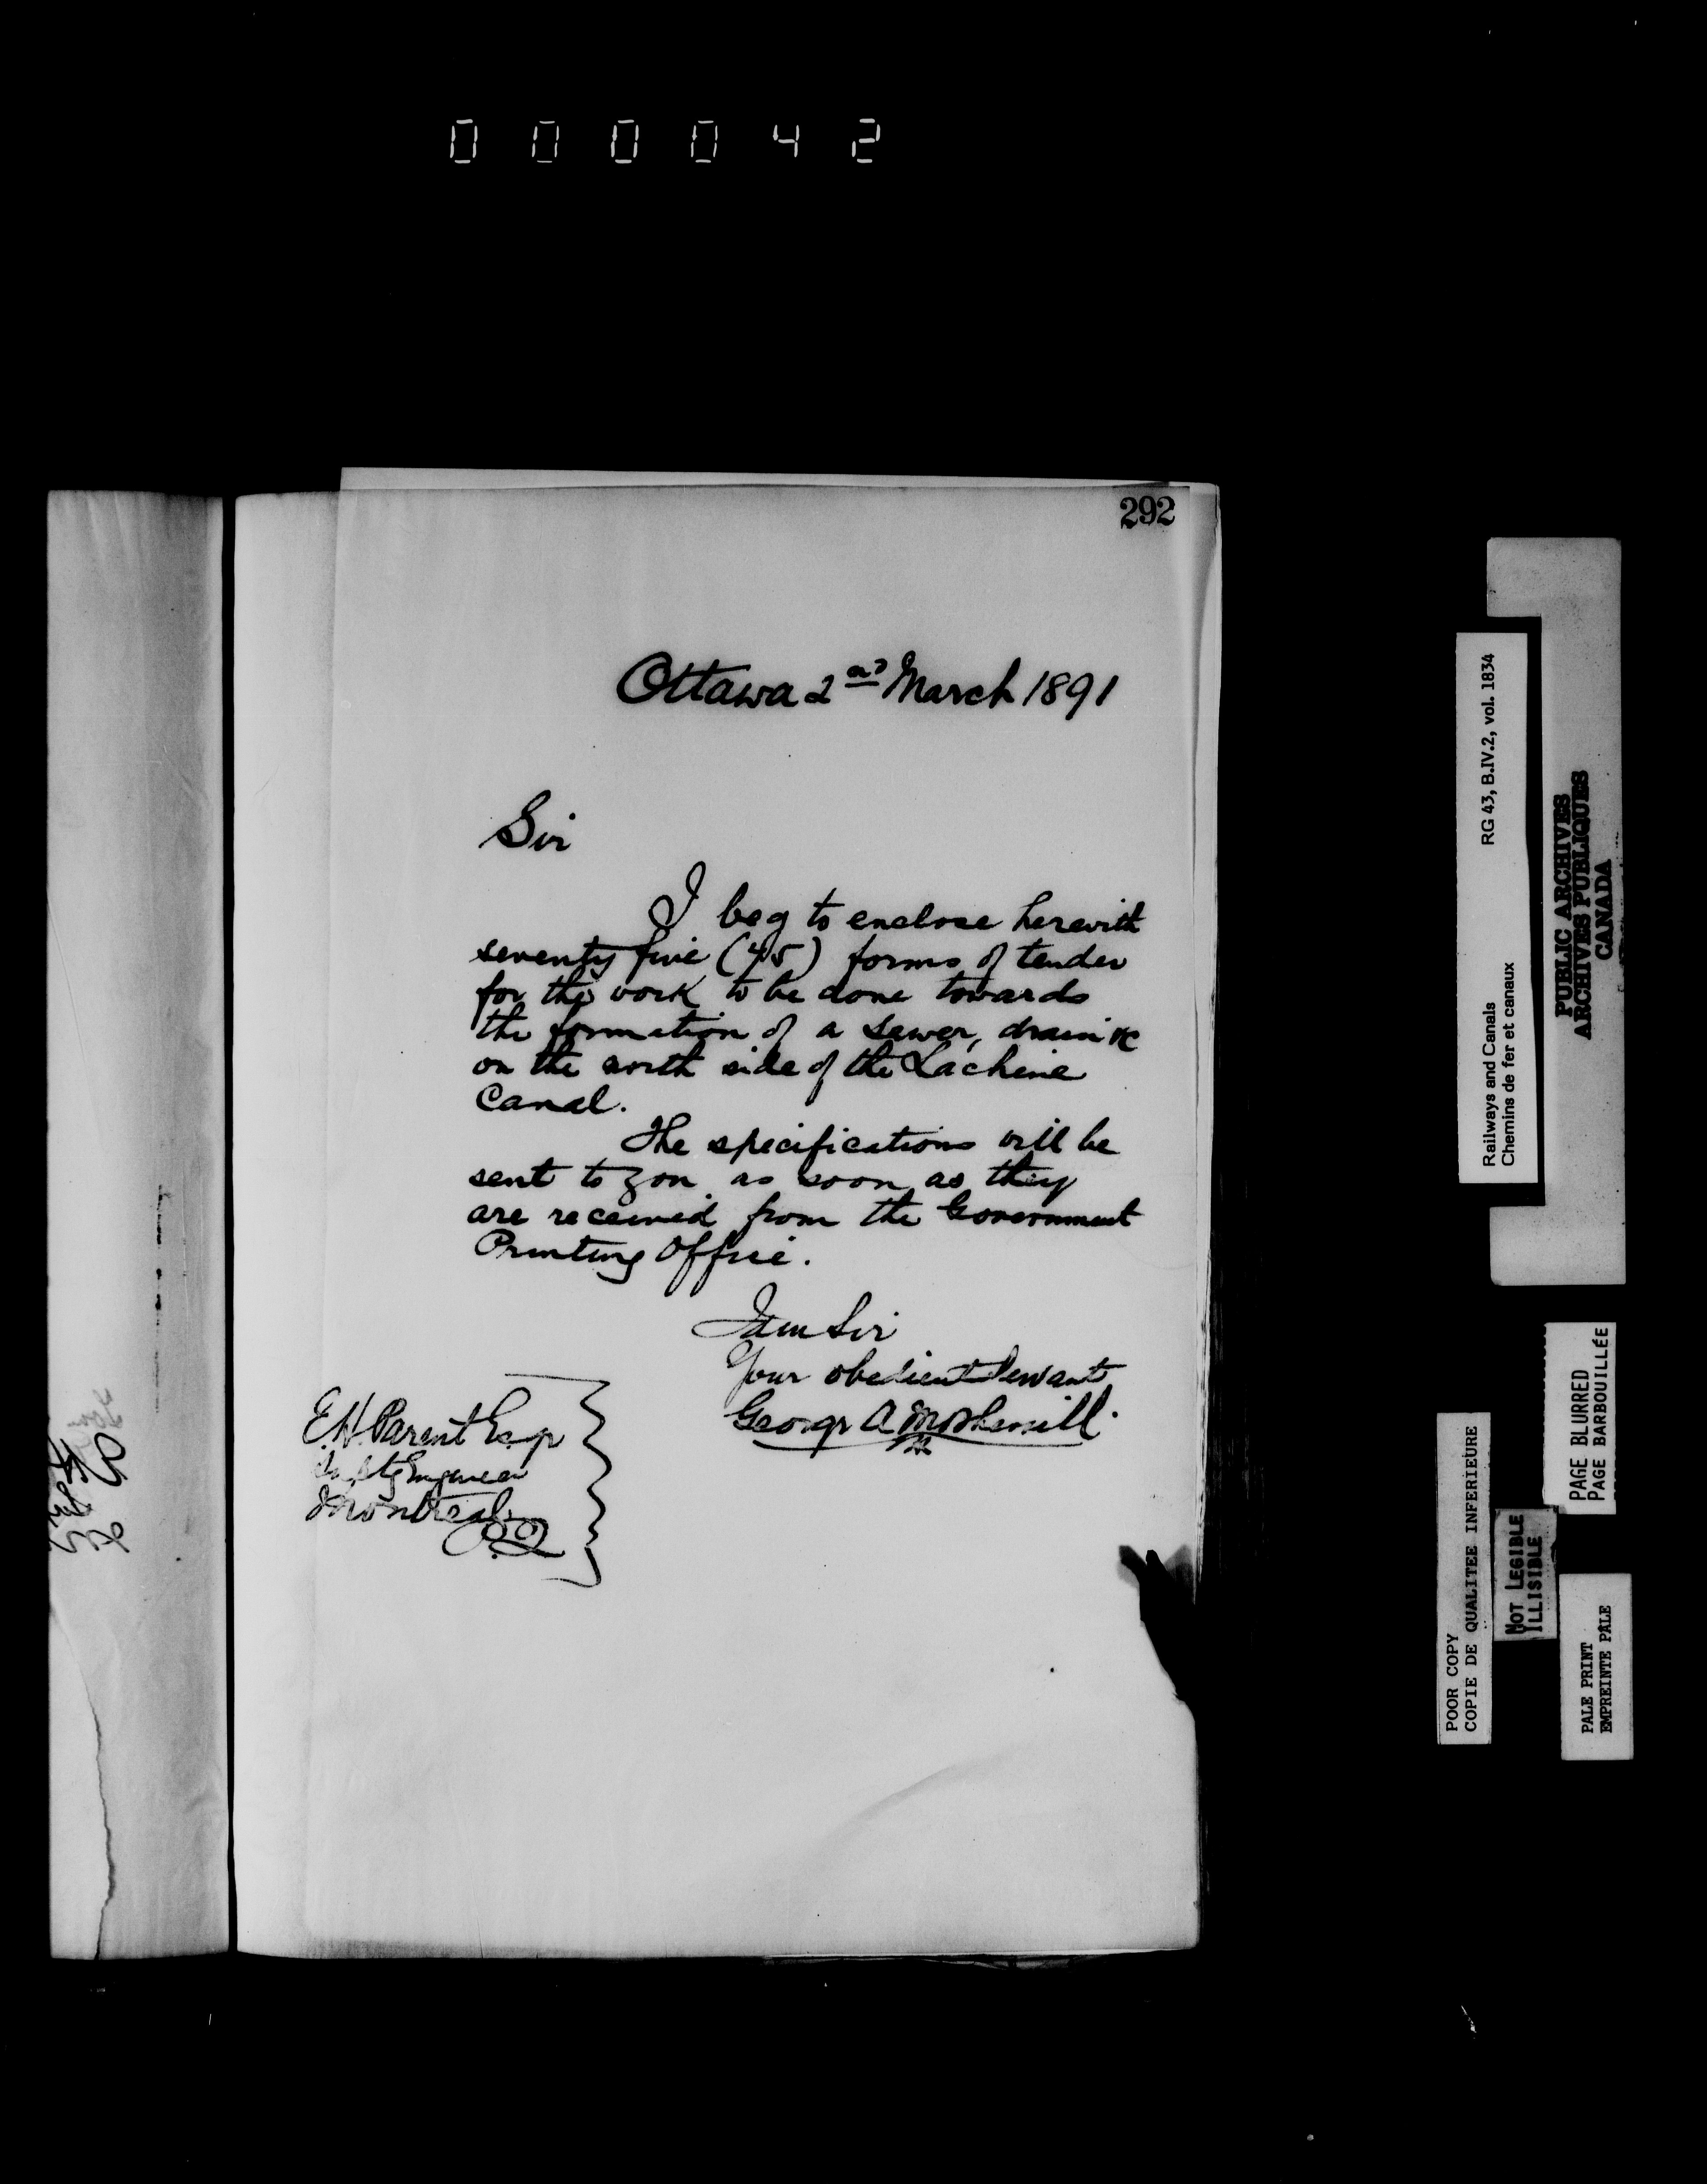 000042
292
Ottawa 2nd March 1891
Sir
I beg to enclose herewith
seventy five (75) forms of tender
for the work to be done towards
the formation of a sewer, drain &c
on the north side of the Lachine
Canal.
The specifications will be
sent to you as soon as they
are received from the Government
Printing Office.
I am Sir
Your obedient Servant
George A
E.H. Parent Esqr
Supt Engineer
Montreal
P.Q
Railways and Canals RG 43, B.IV.2, vol. 1834
Chemins de fer et canaux
PUBLIC ARCHIVES
ARCHIVES PUBLIQUES
CANADA
PAGE BLURRED
PAGE BARBOUILLÉE
POOR COPY
COPIE DE QUALITEE INFERIEURE
NOT LEGIBLE
ILLISIBLE
PALE PRINT
EMPREINTE PÂLE